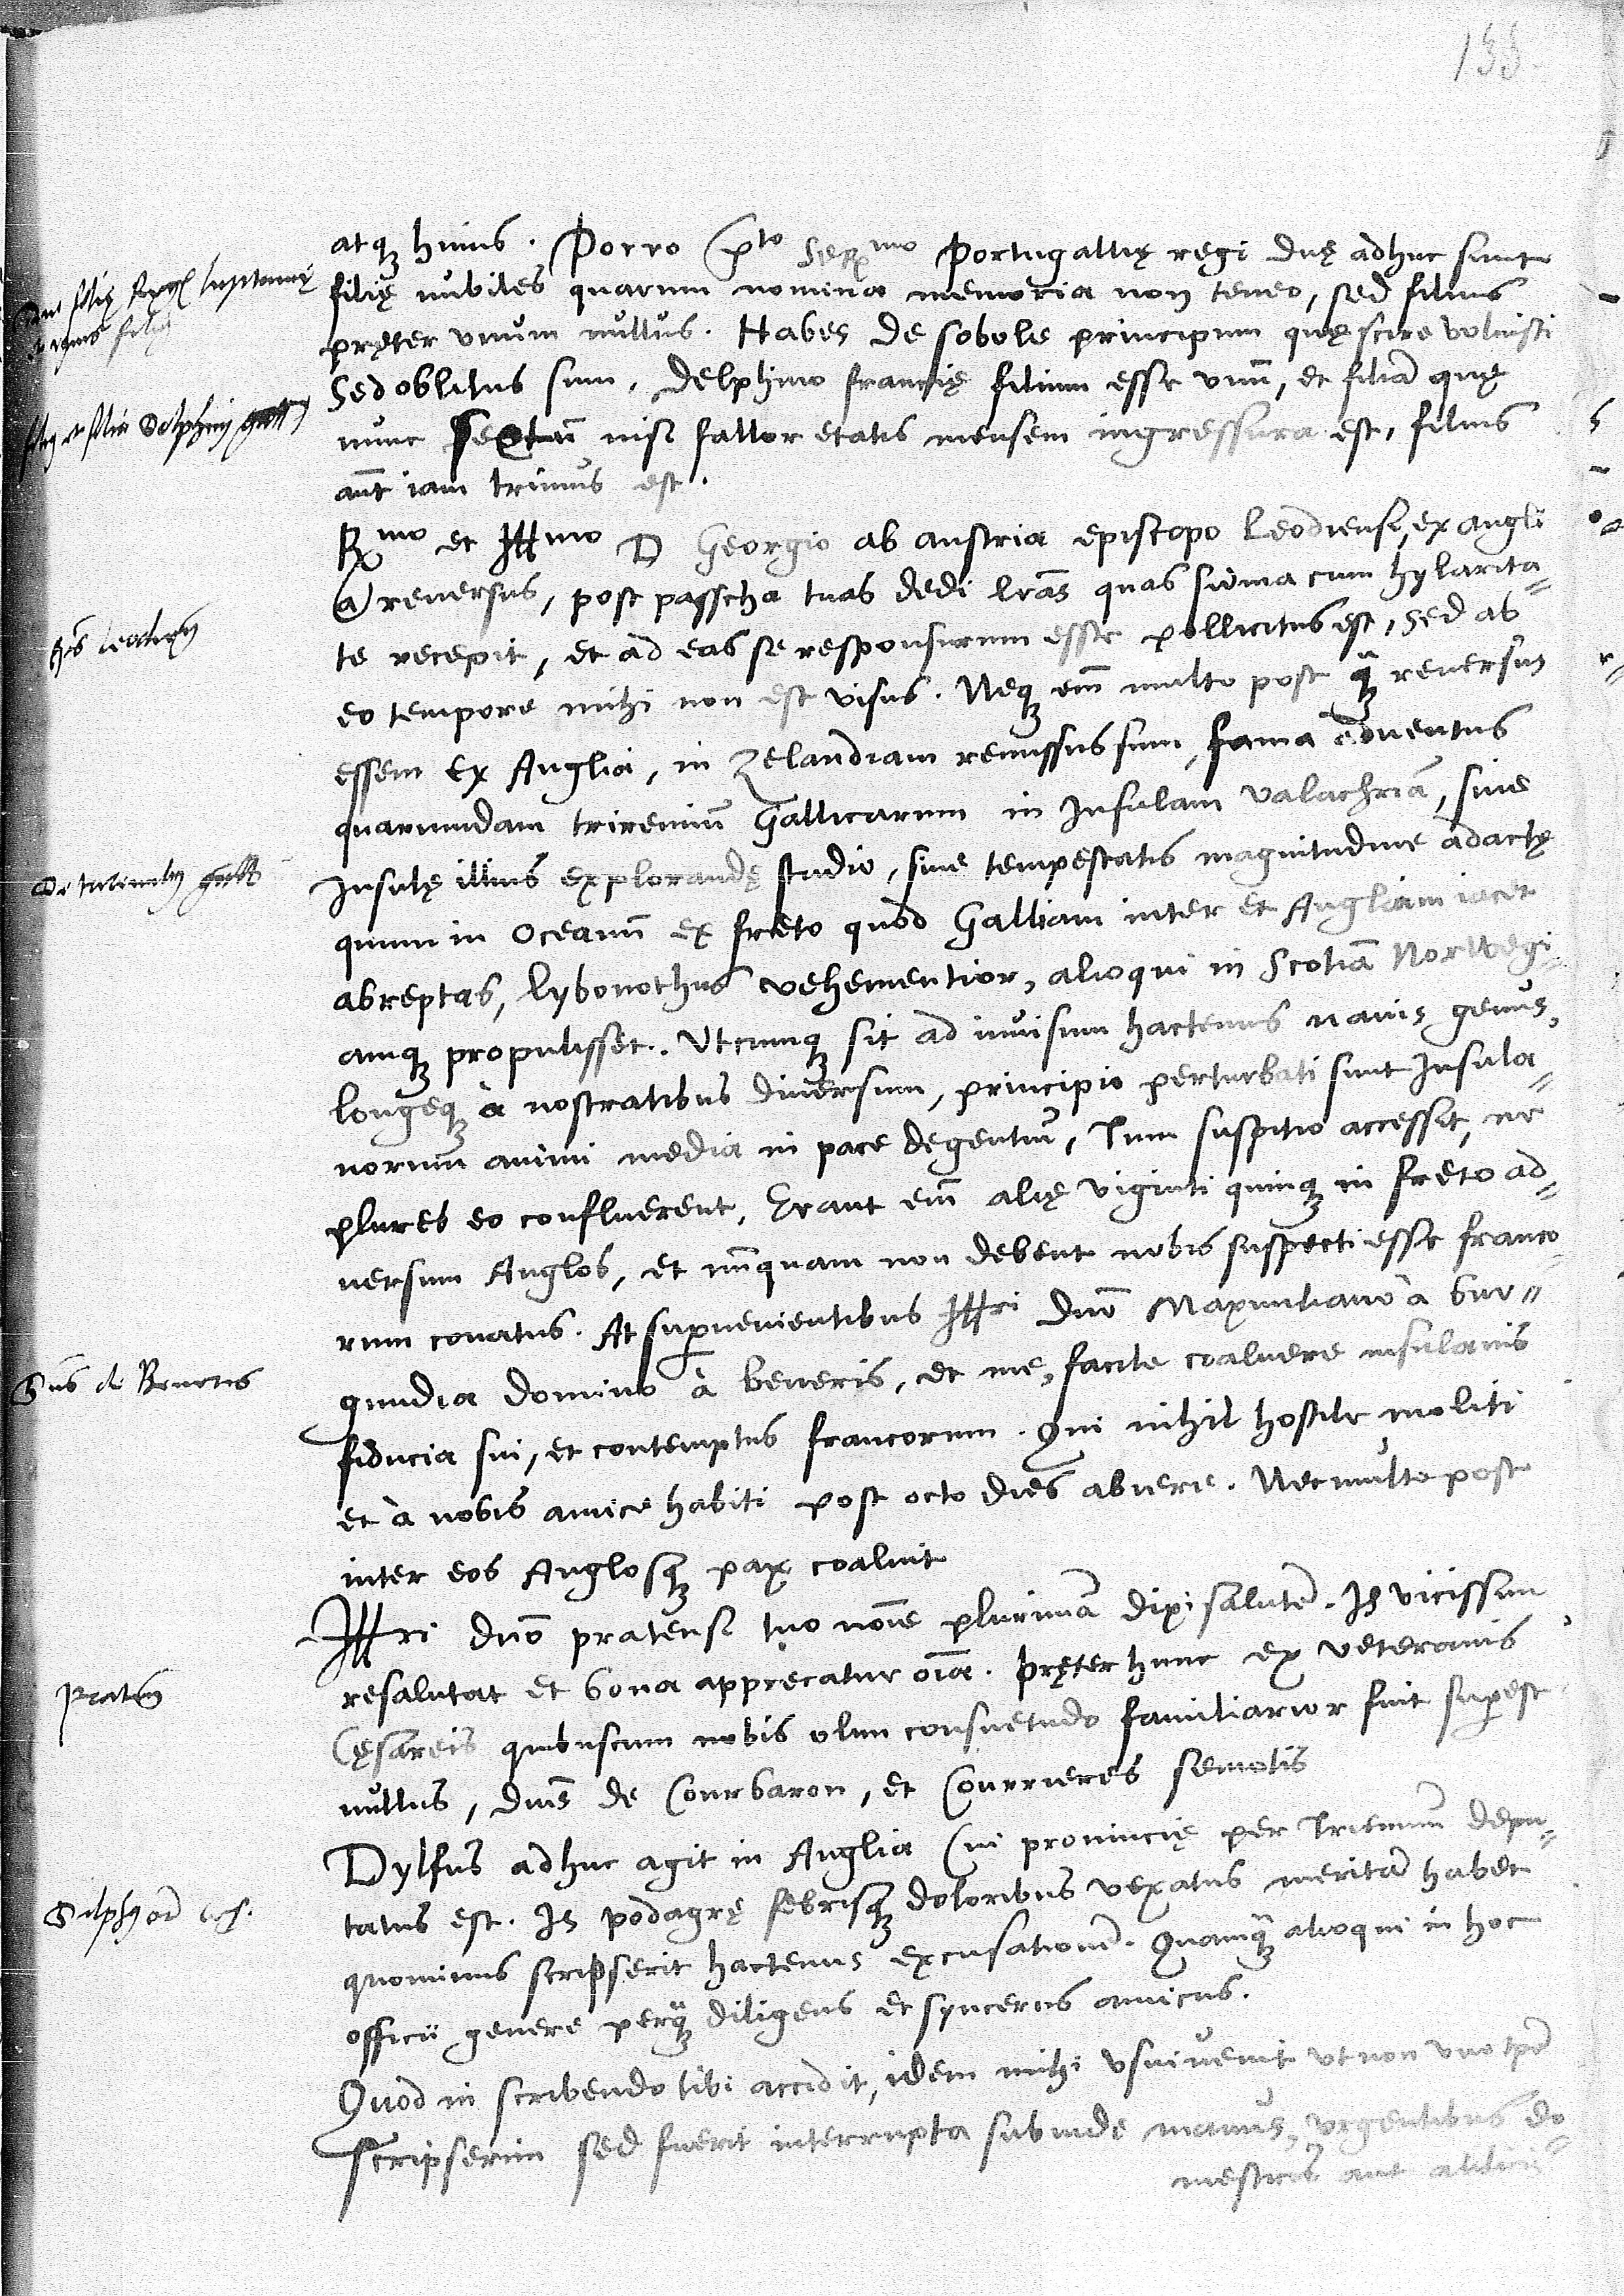 155
atq₃ huius. Porro p^to Ser^mo Portugallię regi duę adhuc sunt
filię nubiles quarum nomina memoria non teneo, sed filius
pręter vnum nullus. Habes de sobole principum quę scire voluisti
Sed oblitus sum, Delphino francię filium esse vnū, et filiā quę
nunc sextū nisi fallor etatis mensem ingressura est, filius
aūt iam trimus est.
R^mo et Ill^mo D Georgio ab austria episcopo Leodiensi, ex angli
a reuersus, post passcha tuas dedi lr̄as quas sūma cum hylarita=
te recepit, et ad eas se responsurum esse pollicitus est, sed ab
eo tempore mihi non est visus. Neq₃ em̄ multo post q̄₃ reuersus
essem ex Anglia, in Zelandiam remissus sum, fama aduentus
quarumdam triremiū Gallicarum in Insulam valachriā, siue
Insulę illius explorandę studio, siue tempestatis magnitudine adactę
quum in Oceanū ex freto quod Galliam inter et Angliam iacet
abreptas, lybonothus vehementior, alioqui in Scotiā Norwegi=
amq₃ propulisset. Vtcumq₃ sit ad inuisum hactenus nauis genus,
longeq₃ à nostratibus diuersum, principio perturbati sunt Insula=
norum animi media in pace degentiū, Tum suspitio accessit, ne
plures eo confluerent, Erant em̄ alię viginti quinq₃ in freto ad=
uersum Anglos, et nūquam non debent nobis suspecti esse franco=
rum conatus. At superuenientibus Illri Dn̄o Maximiliano à bur=
gundia domino à beueris, et me, facile coaluere insulanis
fiducia sui, et contemptus francorum. Qui nihil hostile moliti
et à nobis amice habiti post octo dies abiere. Nec multo post
inter eos Anglosq₃ pax coaluit
Illri dn̄o pratensi tuo noīe plurimā dixi salutē. Is vicissim
resalutat et bona apprecatur oīa. Pręter hunc ex veteranis
Cęsareis quibuscum nobis olim consuetudo familiarior fuit superest
nullus, dnīs de Courbaron, et Courrieres semotis
Dylfus adhuc agit in Anglia cui prouincię per Triennium depu=
tatus est. Is podagrę febrisq₃ doloribus vexatus meritā habet
quominus scripserit hactenus excusationē. Quamq̄₃ alioqui in hoc
officii genere perq̄₃ diligens et syncerus amicus.
Quod in scribendo tibi accidit, idem mihi vsuuenit vt non vno tpē
scripserim sed fuerit interrupta subinde manus, vrgentibus do=
mesticis aut
Duę filię Regis lusitanię
et vnus filius
filius et filia Delphini
Eps Leodien
De triremibus gall
Dn̄s de Beueris
Praten